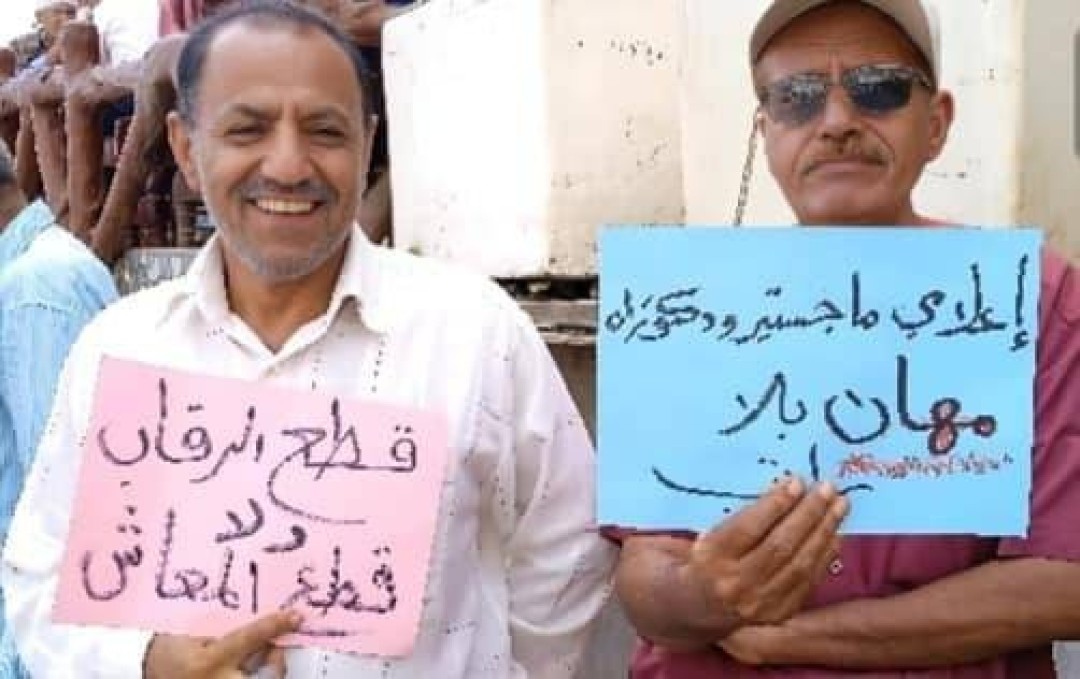 قطع الرقاب
ولا
قطع المعاش
إعلامي ماجستير ودكتوراه
مهان بلا
راتب